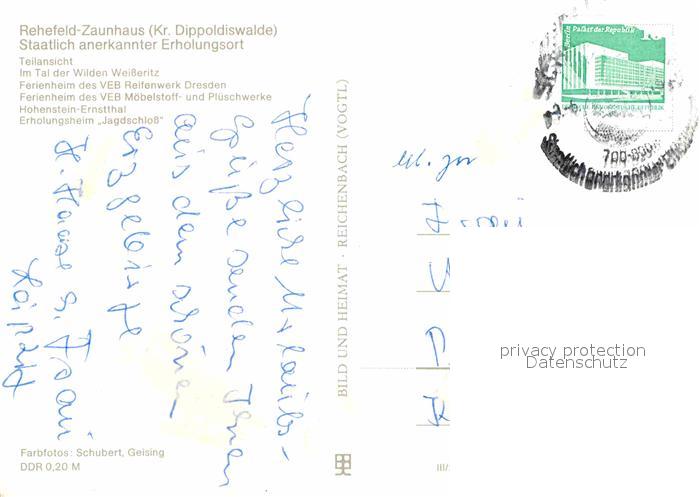 Rehefeld-Zaunhaus (Kr. Dippoldiswalde)
Staatlich anerkannter Erholungsort
Teilansicht
Im Tal der Wilden Weißeritz
Ferienheim des VEB Reifenwerk Dresden
Ferienheim des VEB Möbelstoff- und Plüschwerke
Hohenstein-Ernstthal
Erholungsheim „Jagdschloß"
Herzliche Urlaubs-
Grüße senden Ihnen
aus dem schönen
Erzgebirge
Farbfotos: Schubert, Geising
DDR 0,20 M
BILD UND HEIMAT · REICHENBACH (VOGTL)
III/
Berlin, Palast der Republik
10
700-800
privacy protection
Datenschutz